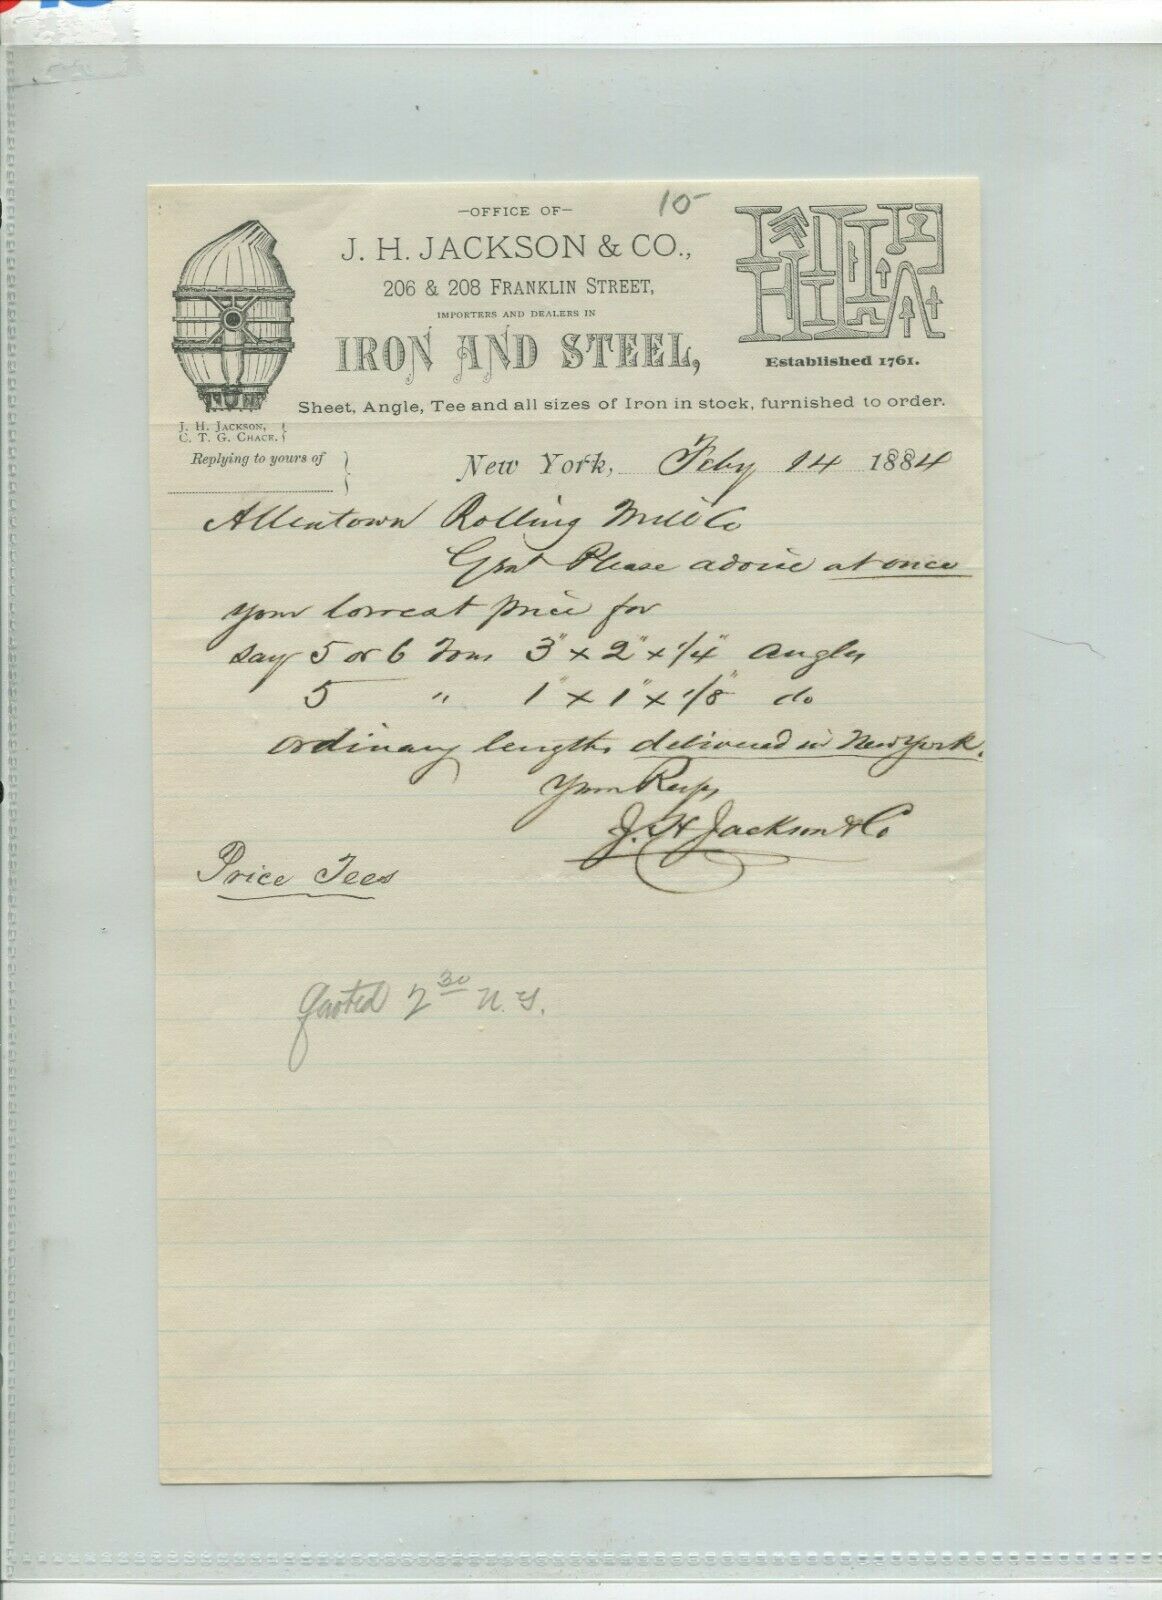 10-
-OFFICE OF-
J. H. JACKSON & CO.,
206 & 208 FRANKLIN STREET,
IMPORTERS AND DEALERS IN
IRON AND STEEL,
Established 1761.
Sheet, Angle, Tee and all sizes of Iron in stock, furnished to order.
J. H. JACKSON,
C. T. G. CHACE.
Replying to yours of
New York, Feby 14 1884
Allentown Rolling Mill Co
Gent Please advise at once
your lowest price for
say 5 or 6 Tons 3" x 2" x 1/4" Angles
5 " 1" x 1" x 1/8" do
ordinary lengths delivered in New York.
Your Resp,
J. H Jackson & Co
Price Tees
Quoted 2 30 N. Y.